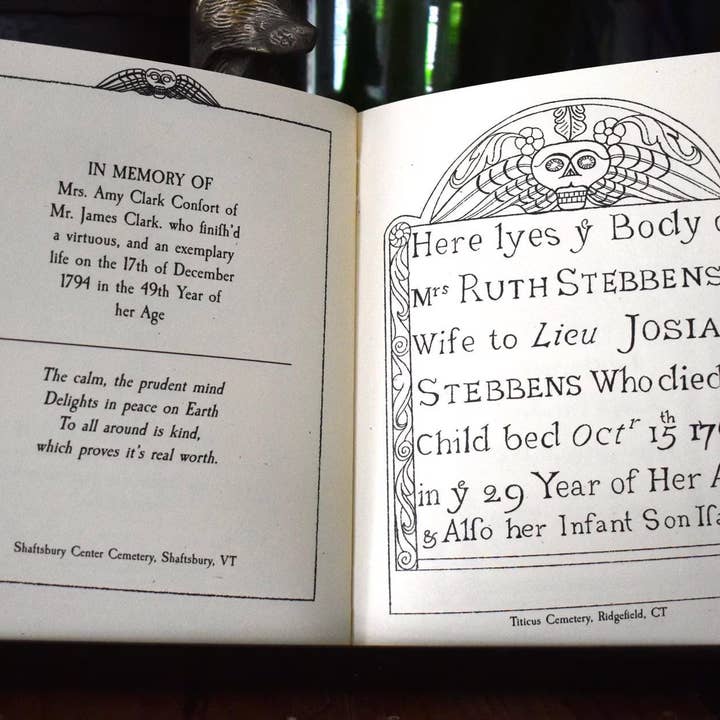 IN MEMORY OF
Mrs. Amy Clark Confort of
Mr. James Clark. who finiſh'd
a virtuous, and an exemplary
life on the 17th of December
1794 in the 49th Year of
her Age
The calm, the prudent mind
Delights in peace on Earth
To all around is kind,
which proves it's real worth.
Shaftsbury Center Cemetery, Shaftsbury, VT
Here lyes yͤ Body
Mrs RUTH STEBBENS
Wife to Lieu JOSIA
STEBBENS Who died
Child bed Octr 15th
in yͤ 29 Year of Her
& Alſo her Infant Son
Titicus Cemetery, Ridgefield, CT